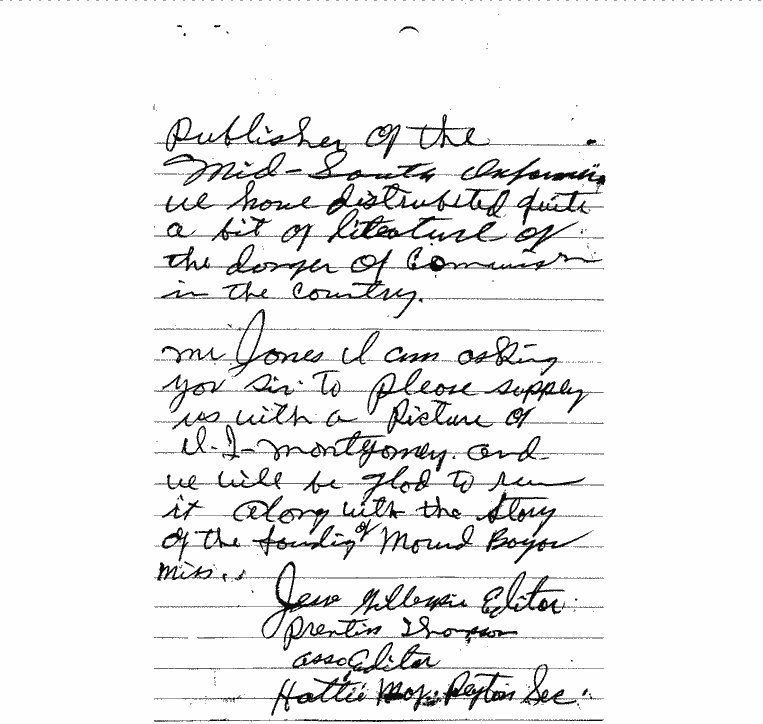 Publisher of the
Mid-South Informer
we have distrubited quite
a bit of liteature of
the danger of Communism
in the country.
Mr Jones I am asking
you sir. to please supply
us with a Picture of
I-montgomey. and
we will be glad to run
it along with the story
of the foundig of Mound Bayou
Miss.
Jesse Gillespie Editor
Prentiss Thompson
asso, Editor
Hattie May Peyton Sec.